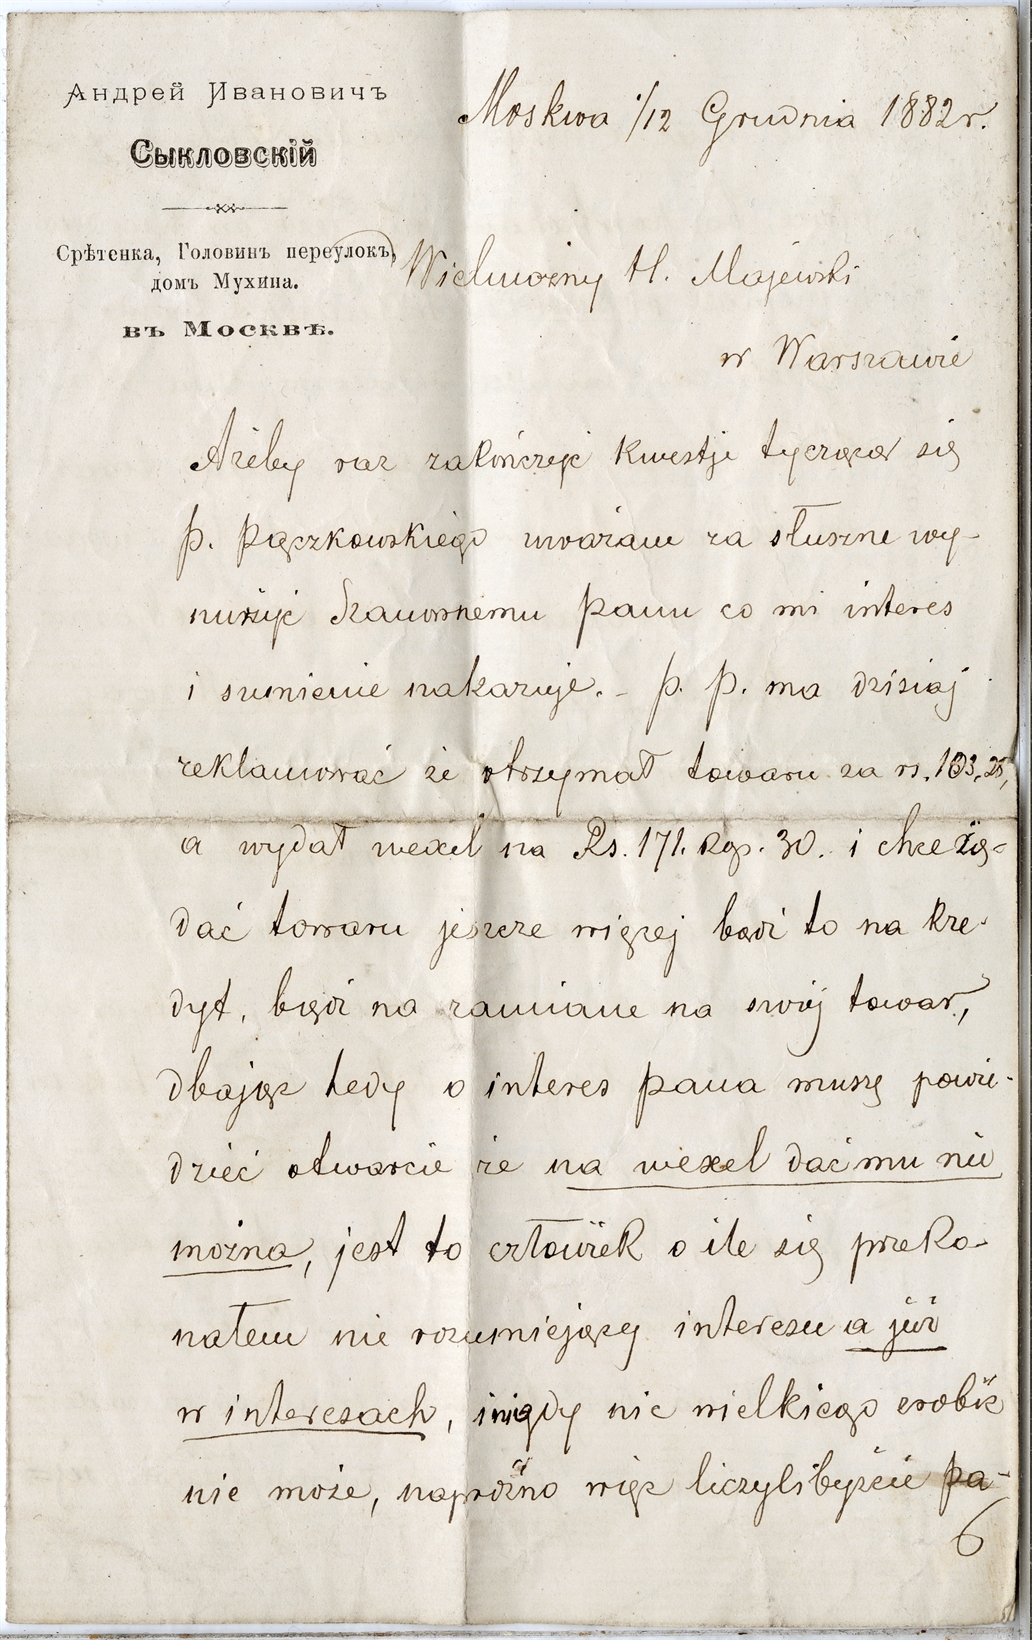 Андрей Ивановичъ
Сыкловскій
Срѣтенка, Головинъ переулокъ,
домъ Мухина.
въ Москвѣ.
Moskwa 1/12 Grudnia 1882 r.
Wielmożny H. Majewski
w Warszawie
Ażeby raz zakończyć kwestje tyczącą się
p. Pączkowskiego uważam za słuszne wy-
nurzyć Szanownemu panu co mi interes
i sumienie nakazuje. - p. P. ma dzisiaj
reklamować że otrzymał towaru za rs. 103,25,
a wydał wexel na Rs. 171. kop. 30. i chce żą-
dać towaru jeszcze więcej bądź to na kre-
dyt, bądź na zamiane na swój towar,
dbając tedy o interes pana muszę powie-
dzieć otwarcie że na wexel dać mu nie
można, jest to człowiek o ile się przeko-
nałem nie rozumiejący interesu a już
w interesach, nigdy nic wielkiego zrobić
nie może, napróżno więc liczylibyście pa-
6